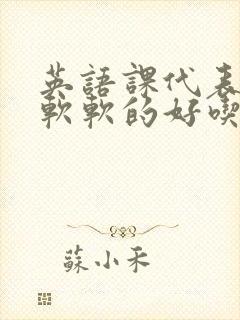 英語課代表
軟軟的好喫
蘇小禾